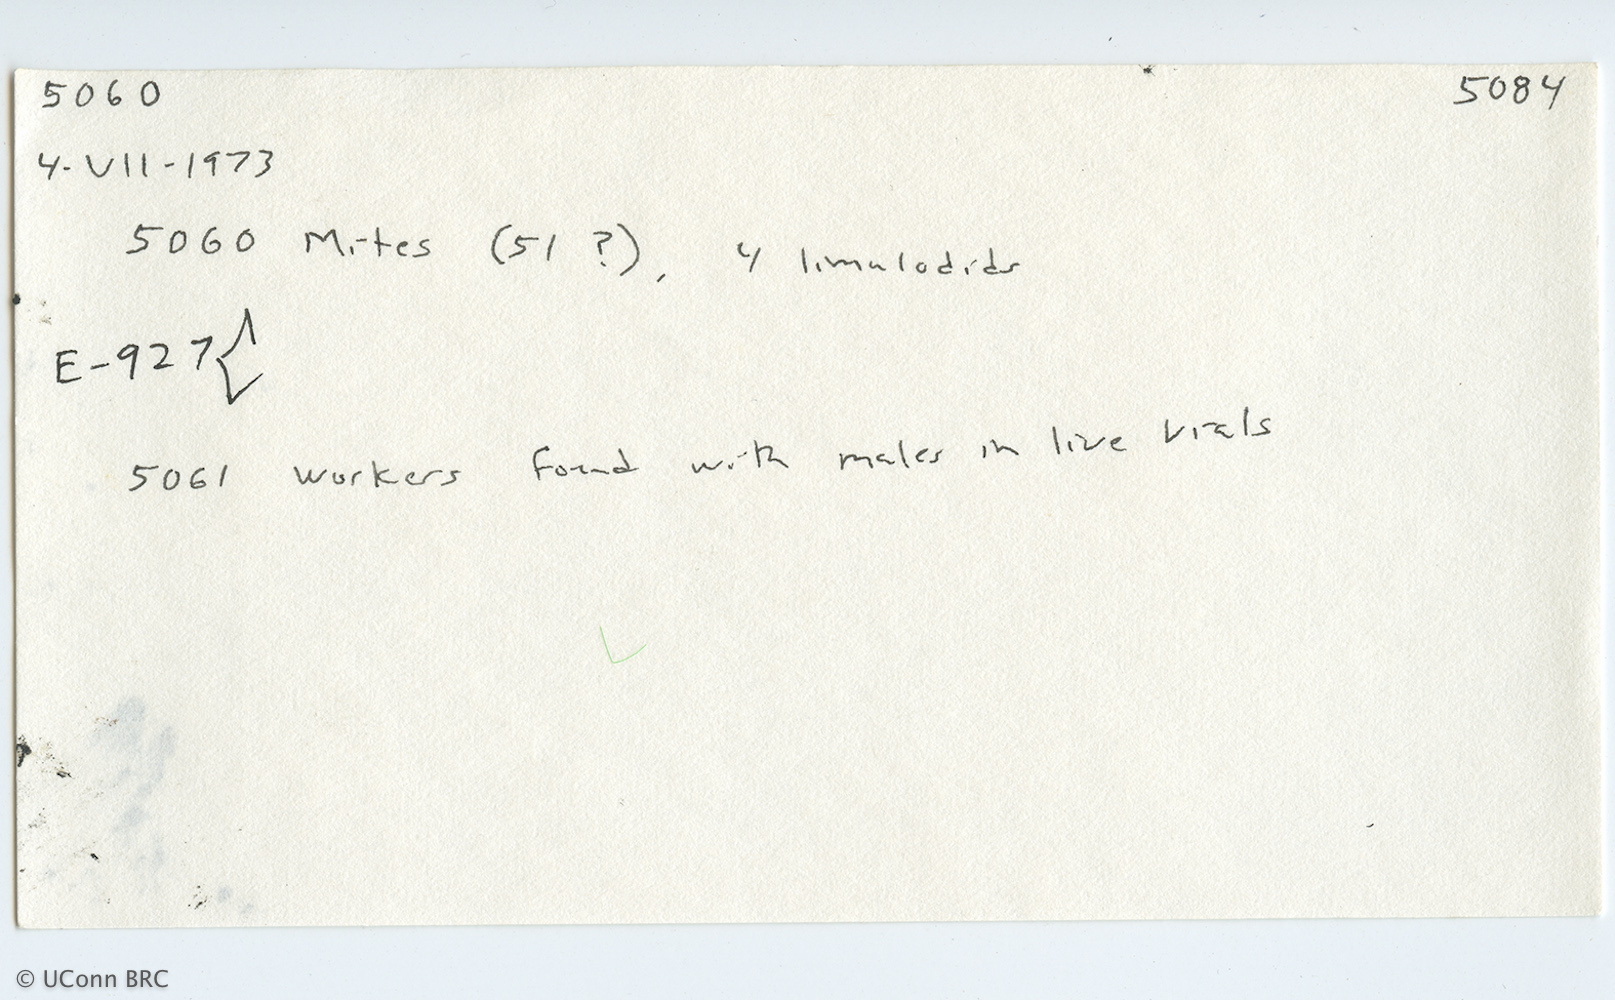 5060 5084
4-VII-1973
5060 Mites (51 ?), 4 limulodids
E-927
5061 workers found with males in live vials
© UConn BRC